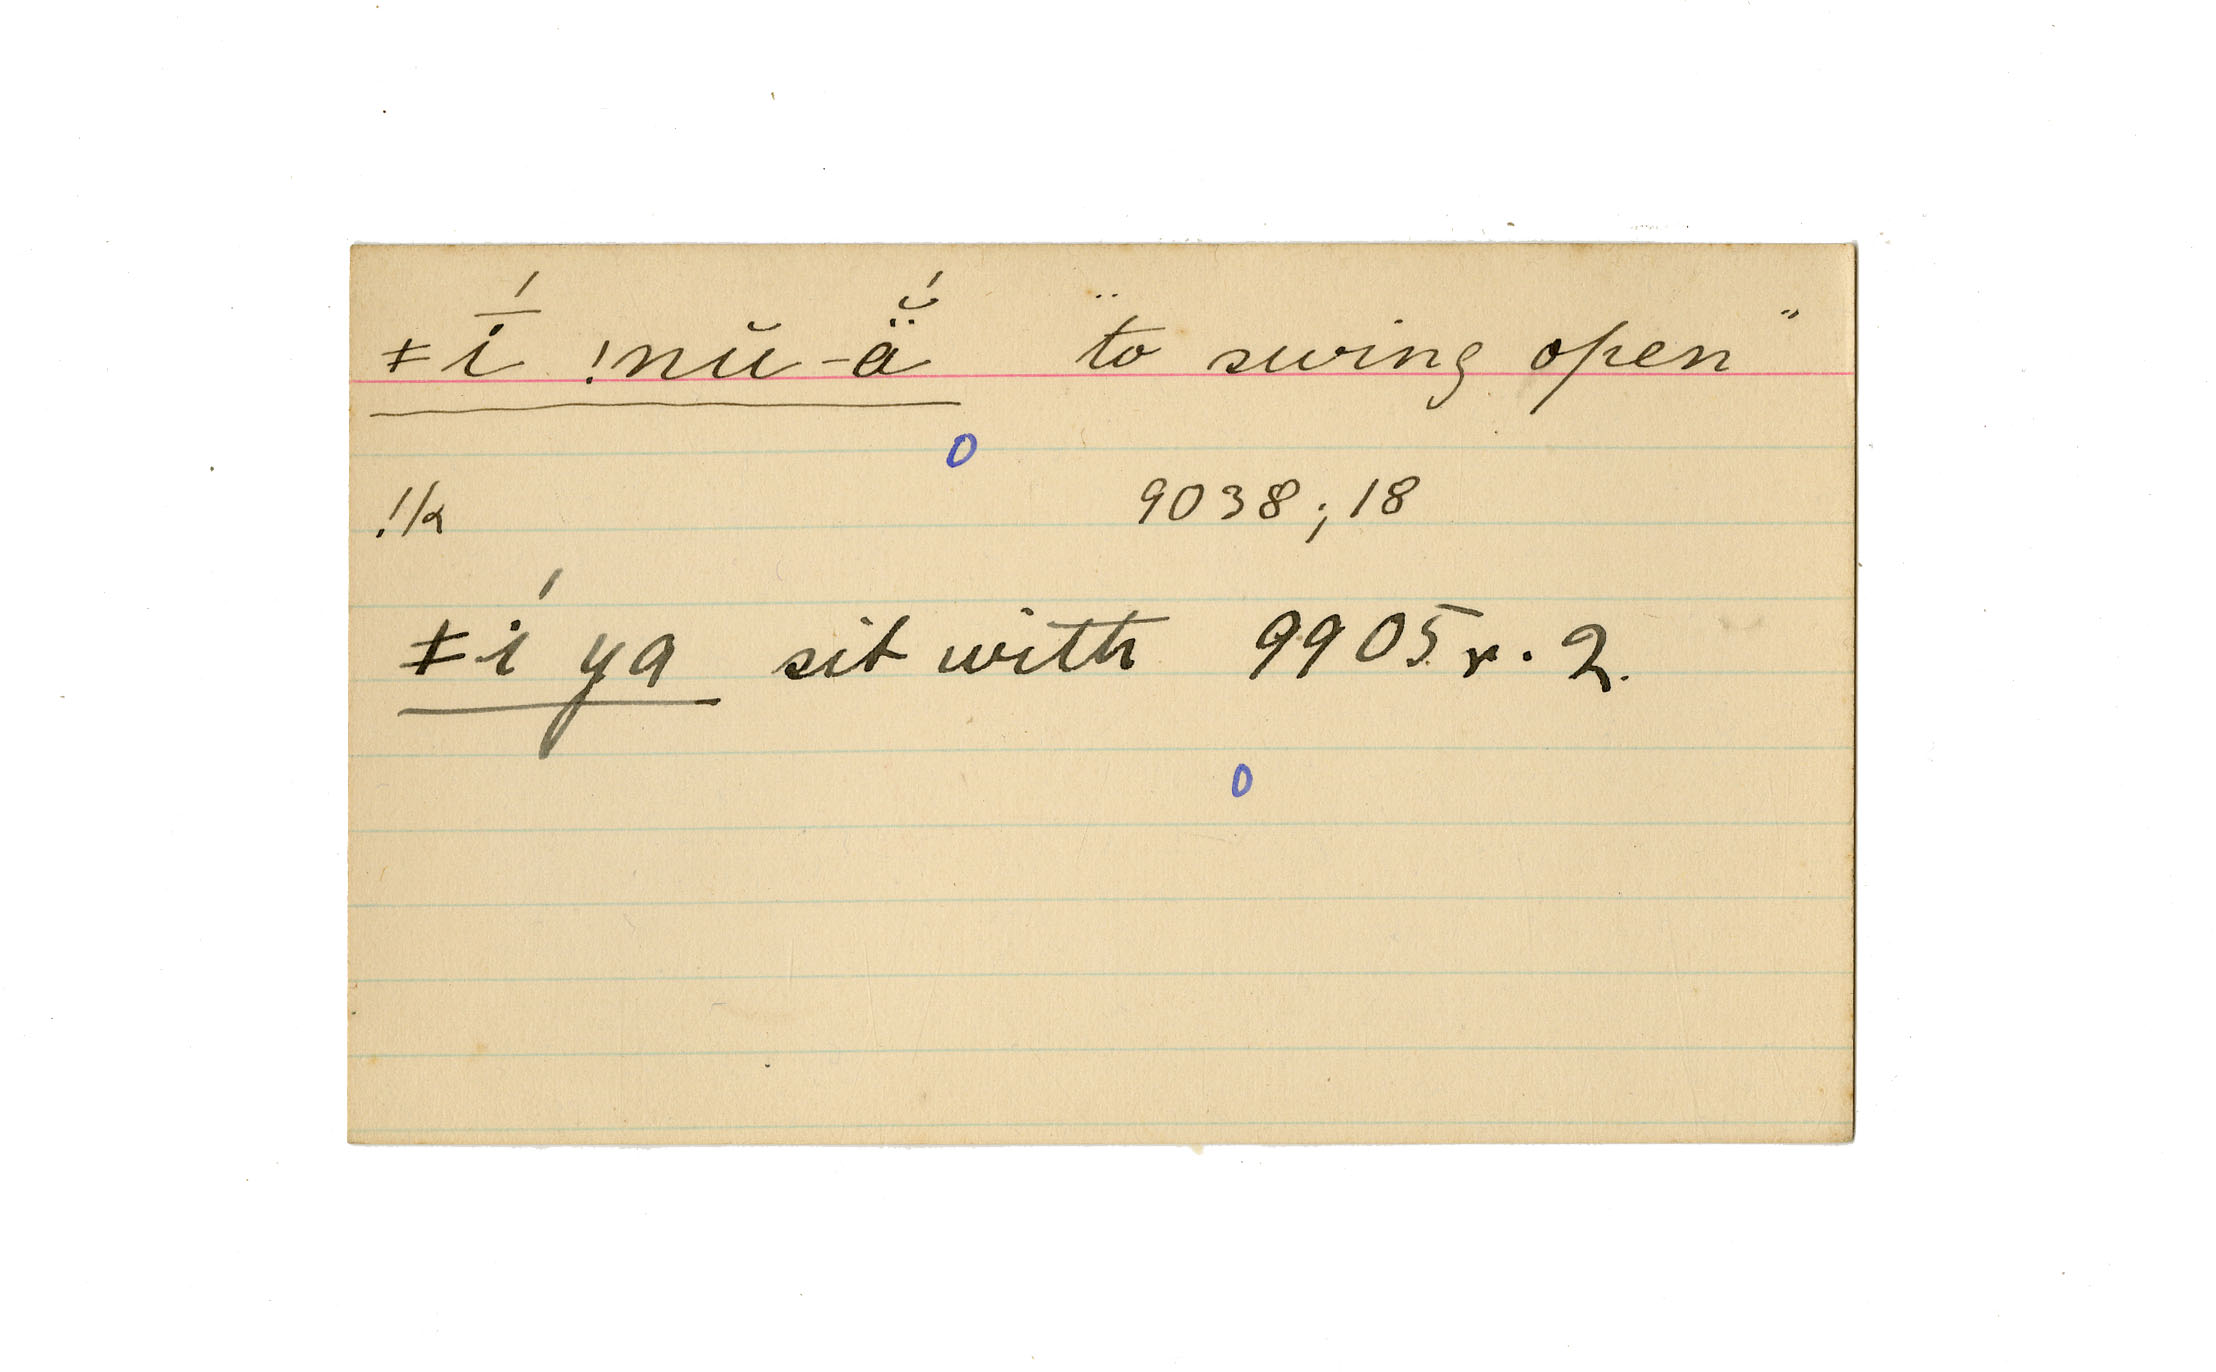 ǂī́ !nŭ-ä̆́ "to swing open"
0
!k 9038; 18
ǂí ya sit with 9905 r. 2.
0